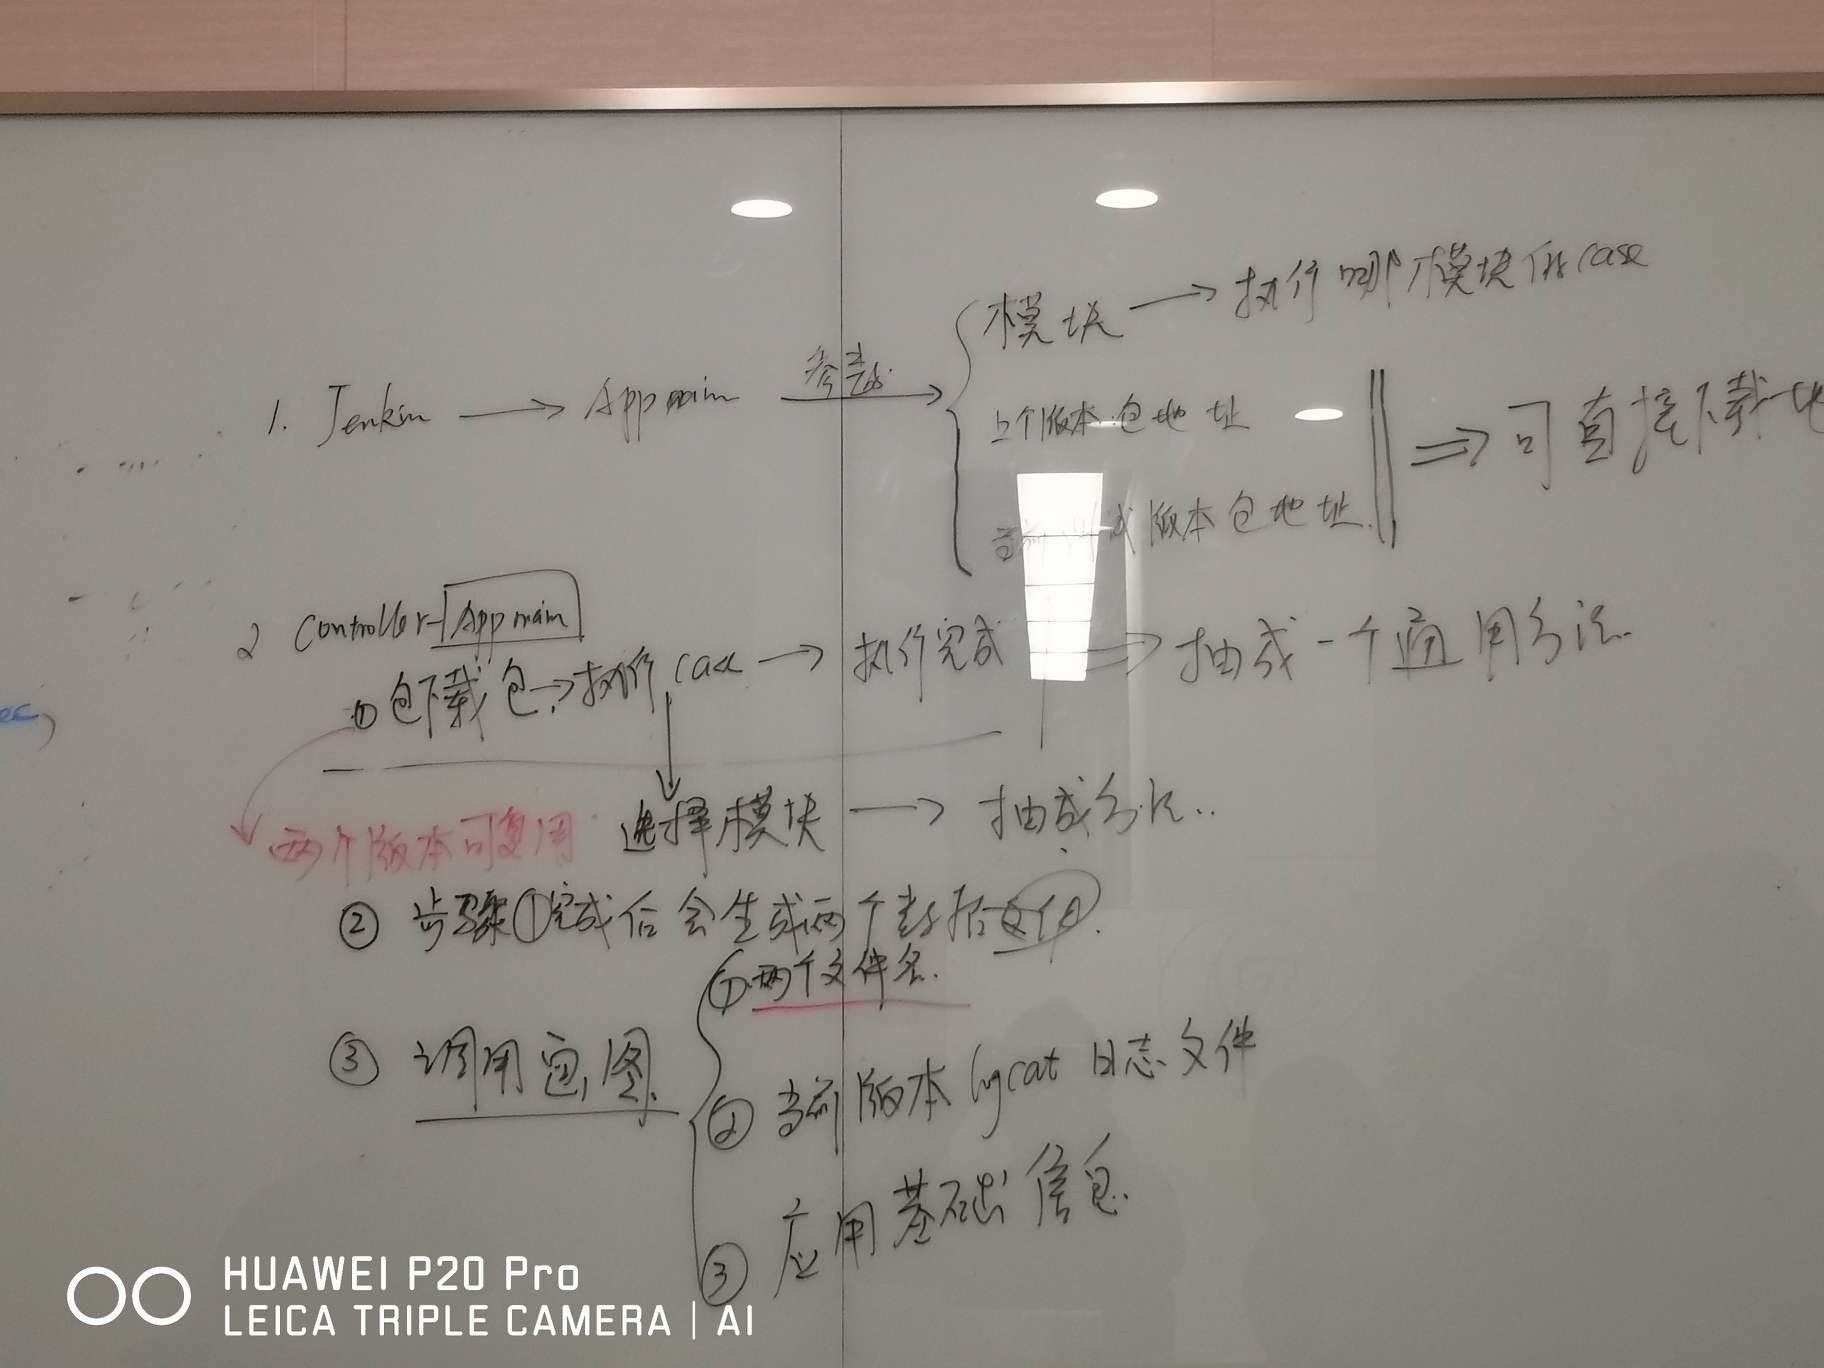 1. Jenkin → Appmain 参数 →
模块 → 执行哪个模块的case
上个版本包地址
当前 版本包地址
⇒ 可直接下载地
2 Controller-Appmain
① 包下载 包 → 执行 case → 执行完成 ⇒ 抽成一个通用方法.
两个版本可复用
选择模块 → 抽成方法..
② 步骤①完成后会生成两个数据文件.
③ 调用画图
① 两个文件名.
② 当前版本logcat日志文件
③ 应用基础信息.
HUAWEI P20 Pro
LEICA TRIPLE CAMERA | AI